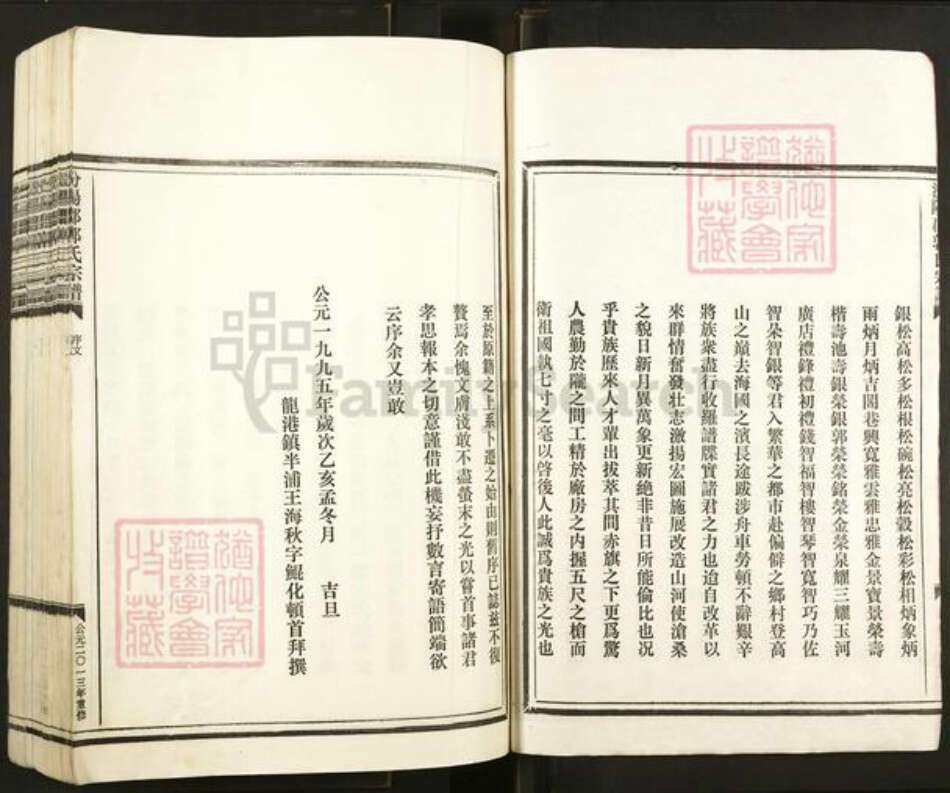 銀松高松多松根松碗松亮松毅松彩松相炳象炳
雨炳月炳吉閣巷興寬雅雲雅忠雅金景寶景榮壽
楷壽池壽銀榮銀郭榮榮銘榮金榮泉耀三耀玉河
廣店禮鋒禮初禮錢智福智樓智琴智寬智巧乃佐
智朵智銀等君入繁華之都市赴偏僻之鄉村登高
山之巔去海國之濱長途跋涉舟車勞頓不辭艱辛
將族衆盡行收羅譜牒實諸君之力也迨自改革以
來群情奮發壯志激揚宏圖施展改造山河使滄桑
之貌日新月異萬象更新絶非昔日所能倫比也况
乎貴族歷來人才輩出拔萃其間赤旗之下更爲驚
人農勤於隴之間工精於廠房之内握五尺之槍而
衛祖國執七寸之毫以啓後人此誠爲貴族之光也
至於原籍之上系下遷之始由則舊序已誌兹不復
贅焉余愧文膚淺敢不盡螢末之光以嘗首事諸君
孝思報本之切意謹借此機妄抒數言寄語簡端欲
云序余又豈敢
公元一九九五年歲次乙亥孟冬月 吉旦
龍港鎮半浦王海秋字鯤化頓首拜撰
汾陽郡郭氏宗譜
序文
公元二〇一三年重修
譜學會
收藏
FamilySearch